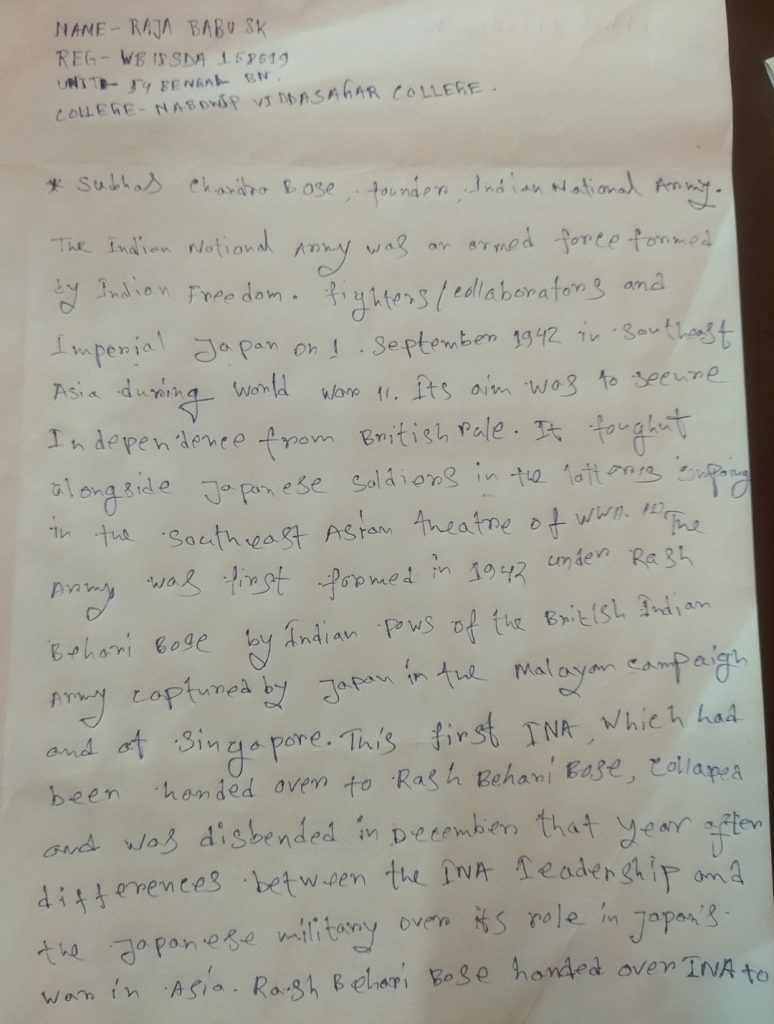 NAME- RAJA BABU SK
REG- WB18SDA 158619
UNIT- 54 BENGAL BN.
COLLEGE- NABDWIP VIDDASAGAR COLLEGE.
* Subhas Chandra Bose, founder, Indian National Army.
The Indian National Army was an armed force formed
by Indian Freedom. fighters/collaborators and
Imperial Japan on 1. September 1942 in Southeast
Asia during World war 11. Its aim was to secure
Independence from British rule. It foughut
alongside Japanese soldiers in the latter's
in the southeast Asian theatre of WWII. [1] The
Army was first formed in 1942 under Rash
Behari Bose by Indian pows of the British Indian
Army captured by Japan in the Malayan campaign
and at Singapore. This first INA, which had
been handed over to Rash Behari Bose, collaped
and was disbended in December that year after
differences between the INA leadership and
the Japanese military over its role in Japan's
war in Asia. Rash Behari Bose handed over INA to